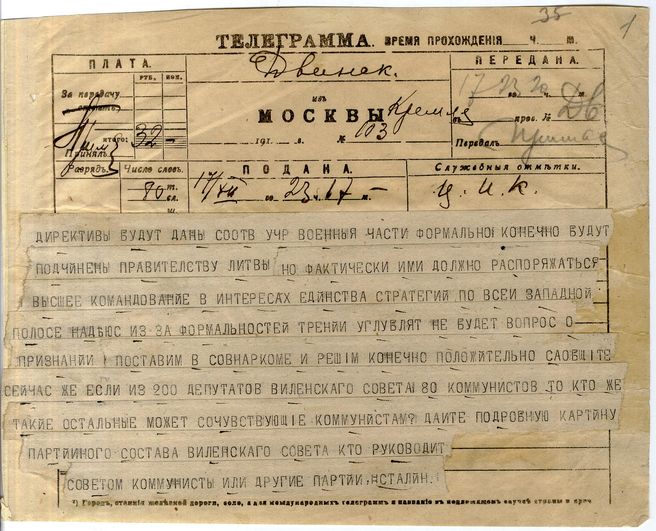 35 1
ТЕЛЕГРАММА. ВРЕМЯ ПРОХОЖДЕНІЯ Ч. М.
ПЛАТА.
РУБ. КОП.
За передачу
итого: 32 —
Принялъ
Двинск.
изъ
МОСКВЫ Кремля
191 г. № 103
ПЕРЕДАНА.
17 23 20
пров. №
Передалъ
Разрядъ. Число словъ.
80 т. сл.
ПОДАНА.
17/XII го 23 ч. 17 м. —
Служебныя отмѣтки.
Ц. И. К.
ДИРЕКТИВЫ БУДУТ ДАНЫ СООТВ УЧР ВОЕННЫЯ ЧАСТИ ФОРМАЛЬНОІ КОНЕЧНО БУДУТ
ПОДЧИНЕНЫ ПРАВИТЕЛСТВУ ЛИТВЫ НО ФАКТИЧЕСКИ ИМИ ДОЛЖНО РАСПОРЯЖАТЬСЯ
ВЫСШЕЕ КОМАНДОВАНИЕ В ИНТЕРЕСАХ ЕДИНСТВА СТРАТЕГИЙ ПО ВСЕИ ЗАПАДНОЙ
ПОЛОСЕ НАДЬЮС ИЗ-ЗА ФОРМАЛЬНОСТЕЙ ТРЕНИЙ УГЛУБЛЯТ НЕ БУДЕТ ВОПРОС О
ПРИЗНАНИИ ПОСТАВИМ В СОВНАРКОМЕ И РЕШІМ КОНЕЧНО ПОЛОЖИТЕЛЬНО САОБЩІТЕ
СЕЙЧАС ЖЕ ЕСЛИ ИЗ 200 ДЕПУТАТОВ ВИЛЕНСКАГО СОВЕТА 80 КОММУНИСТОВ ТО КТО ЖЕ
ТАКИЕ ОСТАЛЬНЫЕ МОЖЕТ СОЧУВСТВУЮЩІЕ КОММУНИСТАМ? ДАИТЕ ПОДРОВНУЮ КАРТИНУ
ПАРТИЙНОГО СОСТАВА ВИЛЕНСКАГО СОВЕТА КТО РУКОВОДИТ
СОВЕТОМ КОММУНИСТЫ ИЛИ ДРУГИЕ ПАРТИИ, =СТАЛИН.
*) Городъ, станція желѣзной дороги, село, а для международныхъ телеграммъ и названіе въ надлежащемъ случаѣ страны и проч